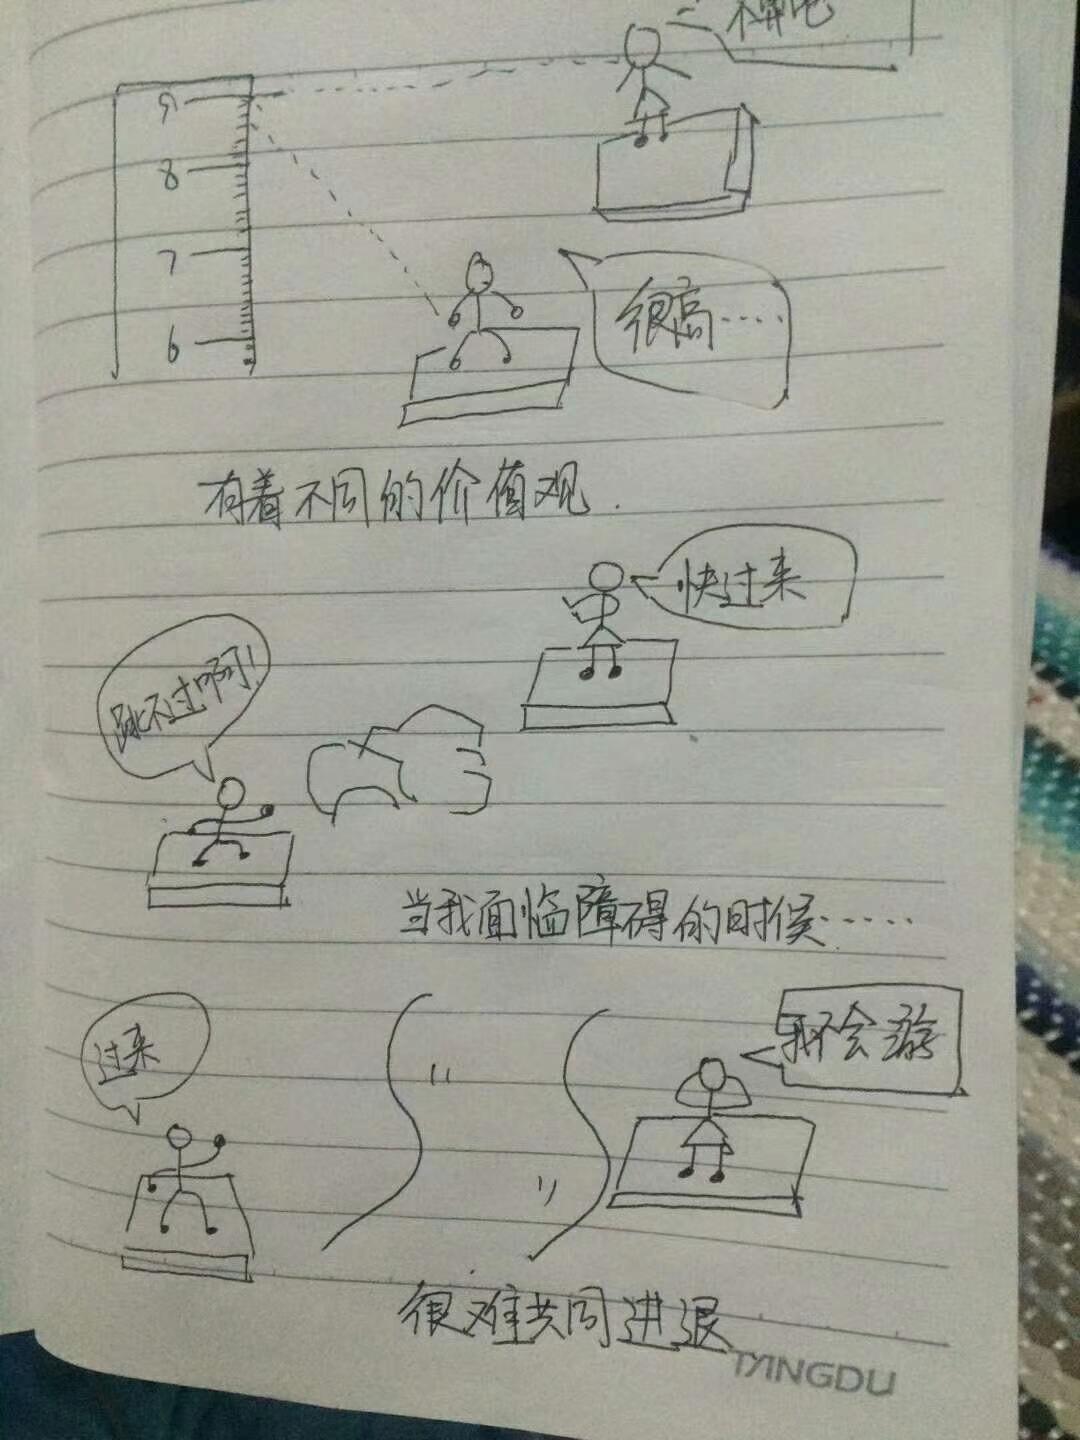 9
8
7
6
很高……
有着不同的价值观.
快过来
跳不过啊!
当我面临障碍的时候……
过来
我不会游
很难共同进退
TANGDU